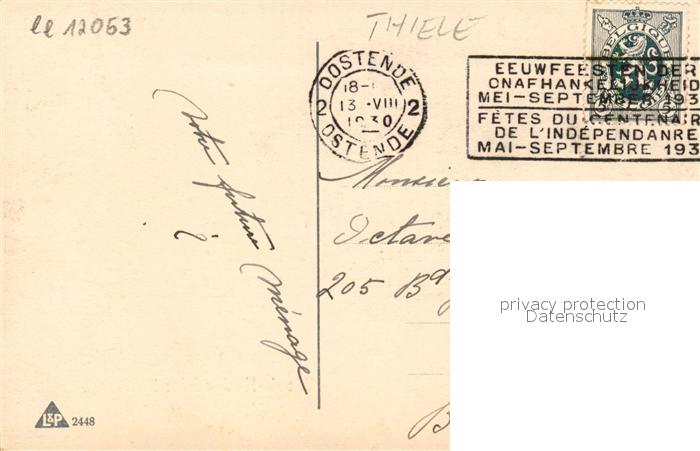 le 12053
THIELE
BELGIQUE
OOSTENDE
18-
13 ·VIII
1930
2 2
OSTENDE
EEUWFEESTEN DER
ONAFHANKELIJKHEID
MEI–SEPTEMBER 193
FÊTES DU CENTENAIR
DE L'INDÉPENDANRE
MAI–SEPTEMBRE 193
Notre futur ménage
?
Monsieur
Octave
205 Bd
B
privacy protection
Datenschutz
L&P 2448